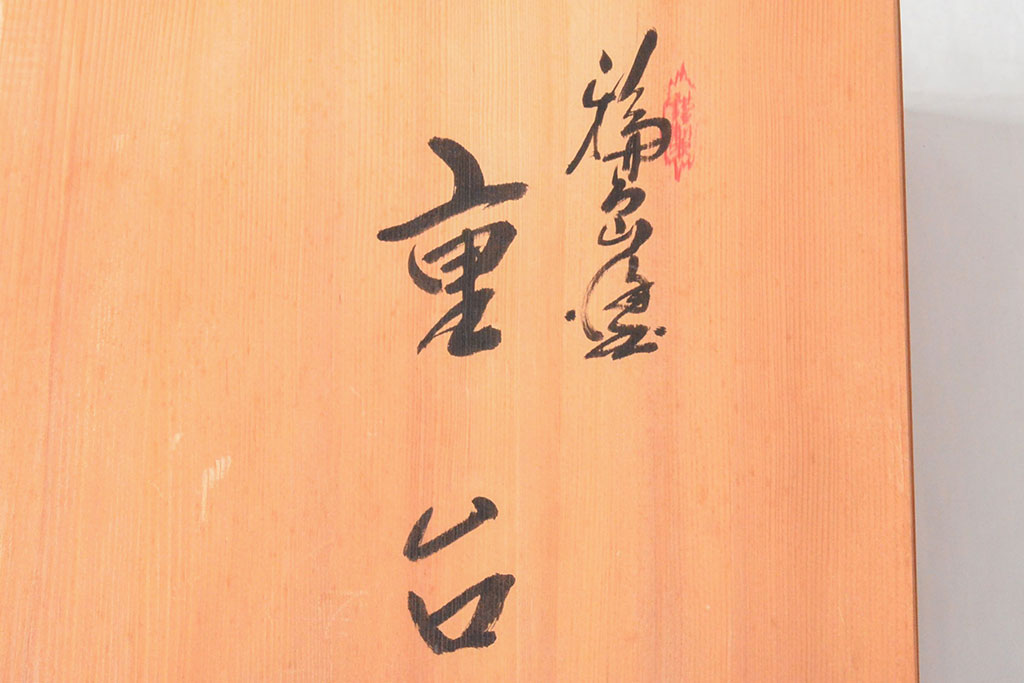 輪島塗
重台